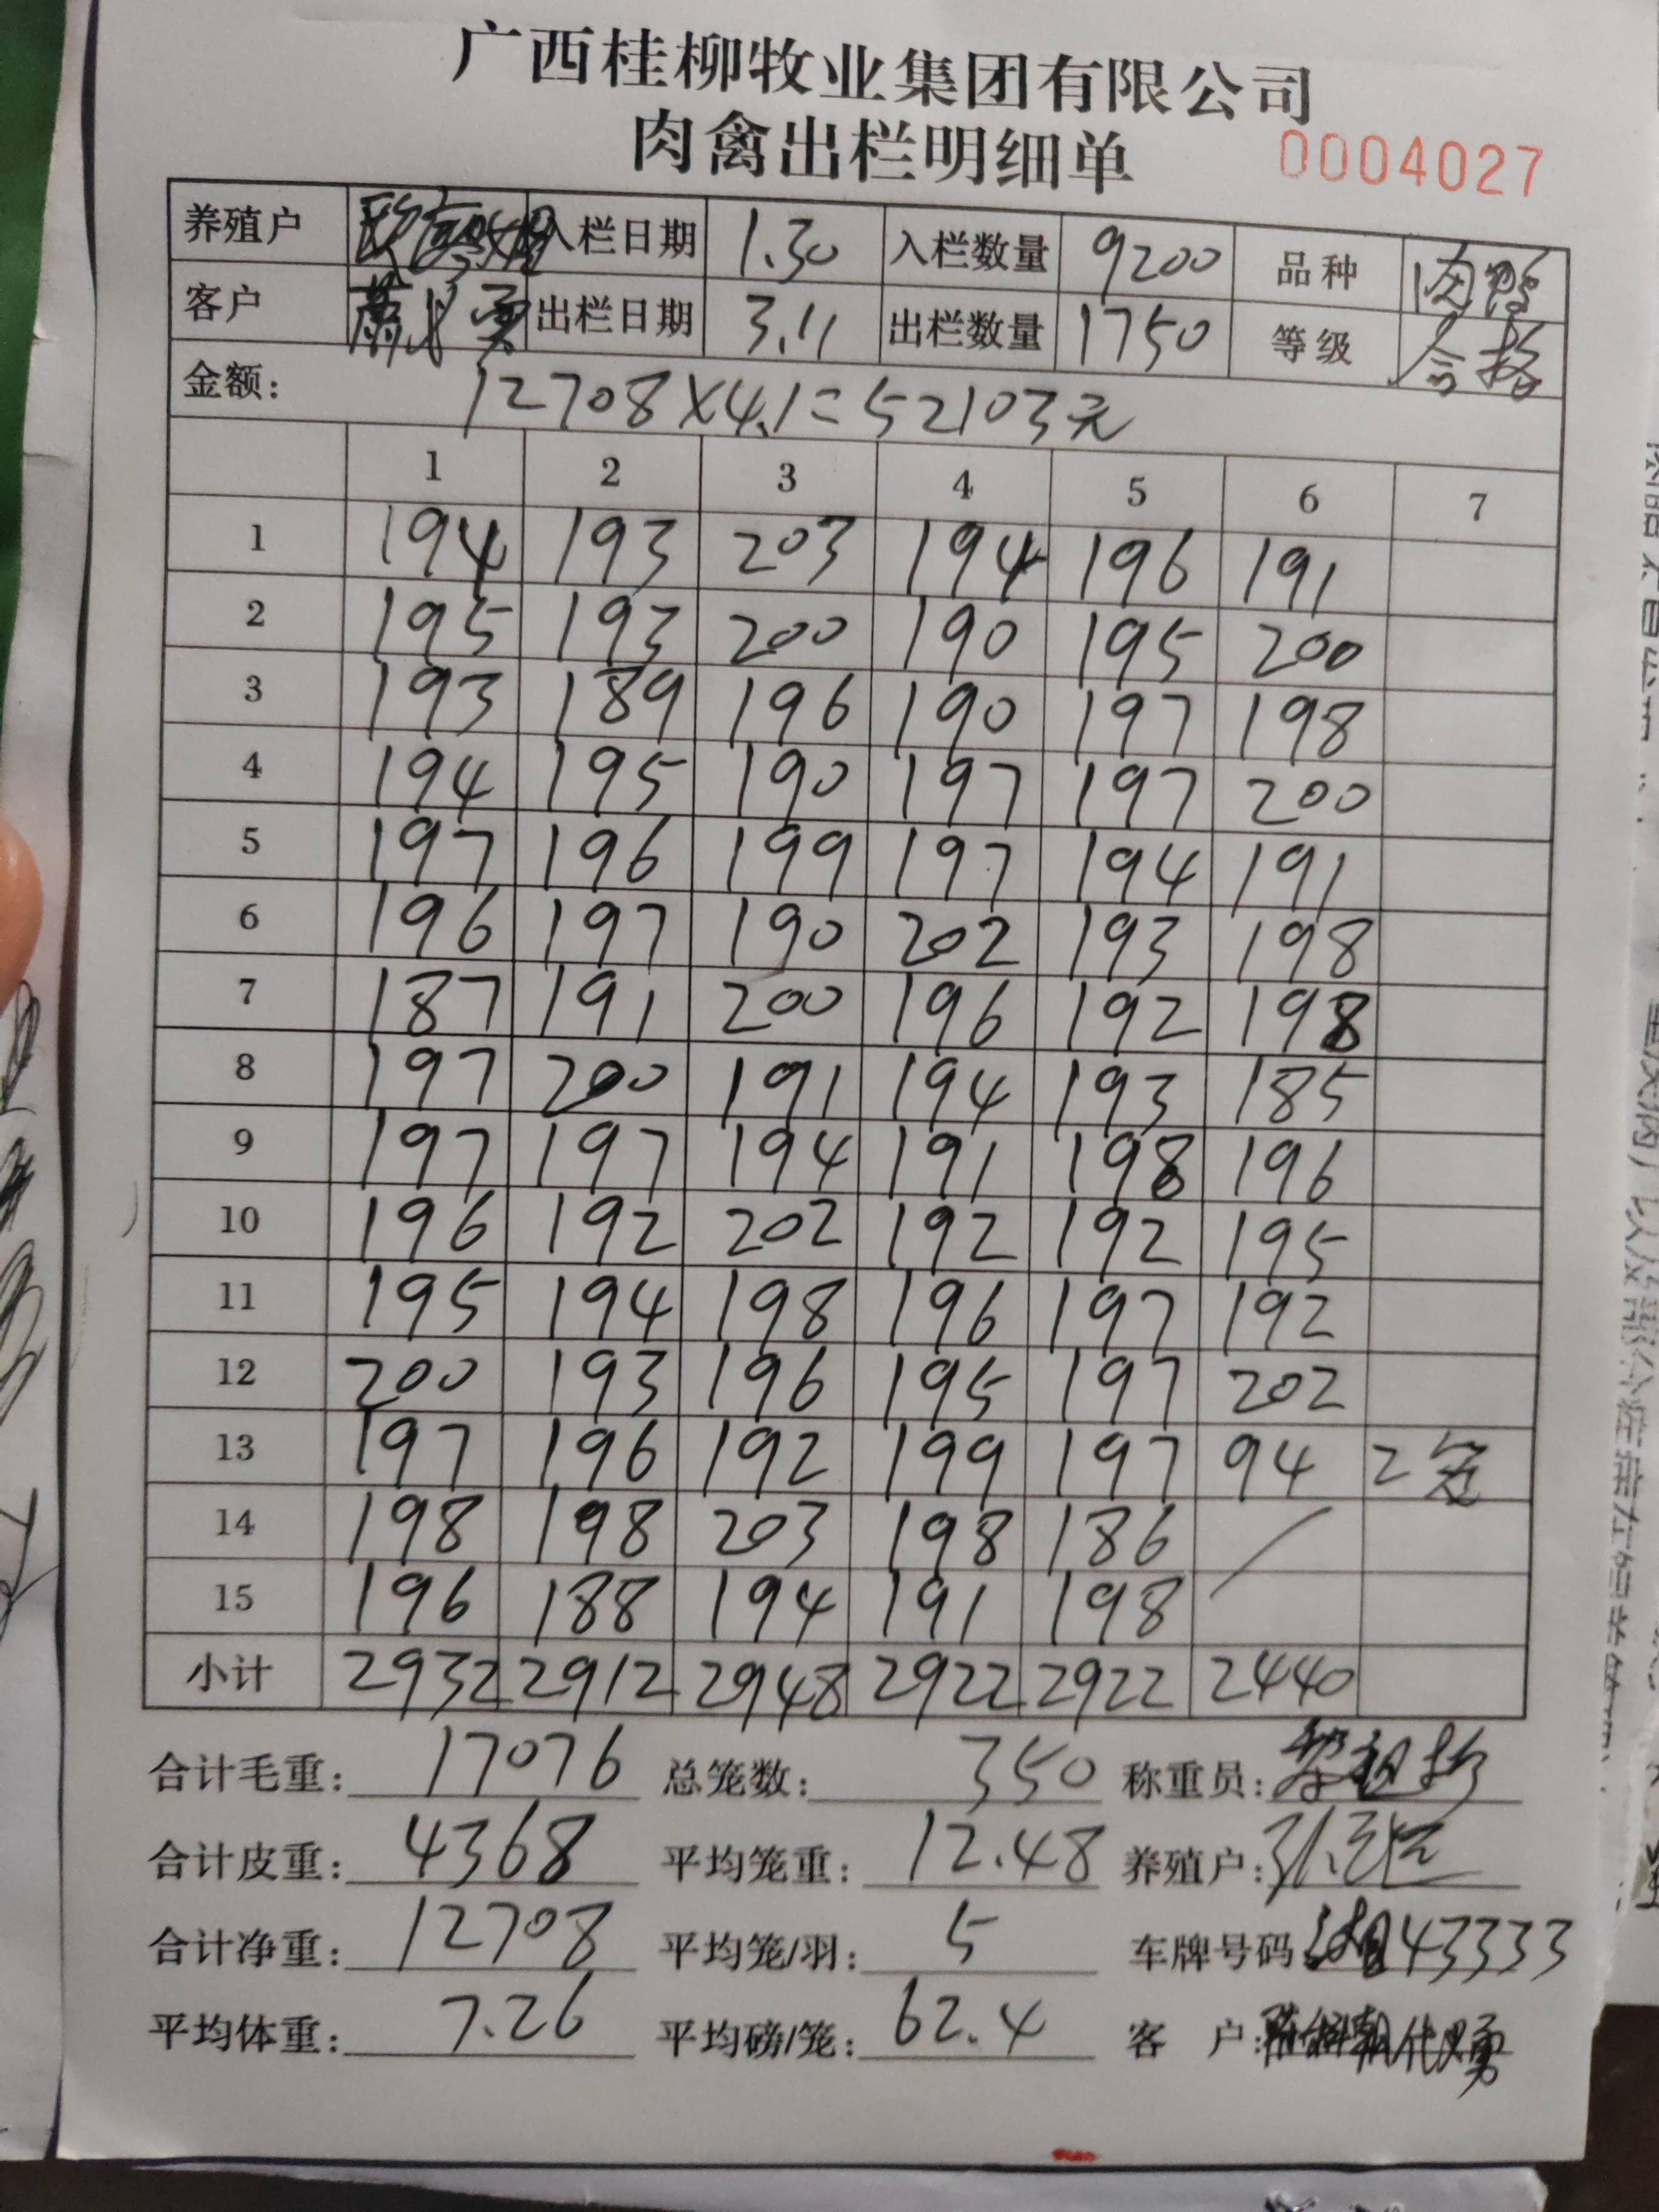 广西桂柳牧业集团有限公司
肉禽出栏明细单 0004027
养殖户 入栏日期 1.30 入栏数量 9200 品种 肉鸭
客户 出栏日期 3.11 出栏数量 1750 等级 合格
金额: 12708×4.1=52103元
1 2 3 4 5 6 7
1 194 193 203 194 196 191
2 195 193 200 190 195 200
3 193 189 196 190 197 198
4 194 195 190 197 197 200
5 197 196 199 197 194 191
6 196 197 190 202 193 198
7 187 191 200 196 192 198
8 197 200 191 194 193 185
9 197 197 194 191 198 196
10 196 192 202 192 192 195
11 195 194 198 196 197 192
12 200 193 196 195 197 202
13 197 196 192 199 197 94 2笼
14 198 198 203 198 186
15 196 188 194 191 198
小计 2932 2912 2948 2922 2922 2440
合计毛重: 17076 总笼数: 350 称重员:
合计皮重: 4368 平均笼重: 12.48 养殖户:
合计净重: 12708 平均笼/羽: 5 车牌号码 43333
平均体重: 7.26 平均磅/笼: 62.4 客户: